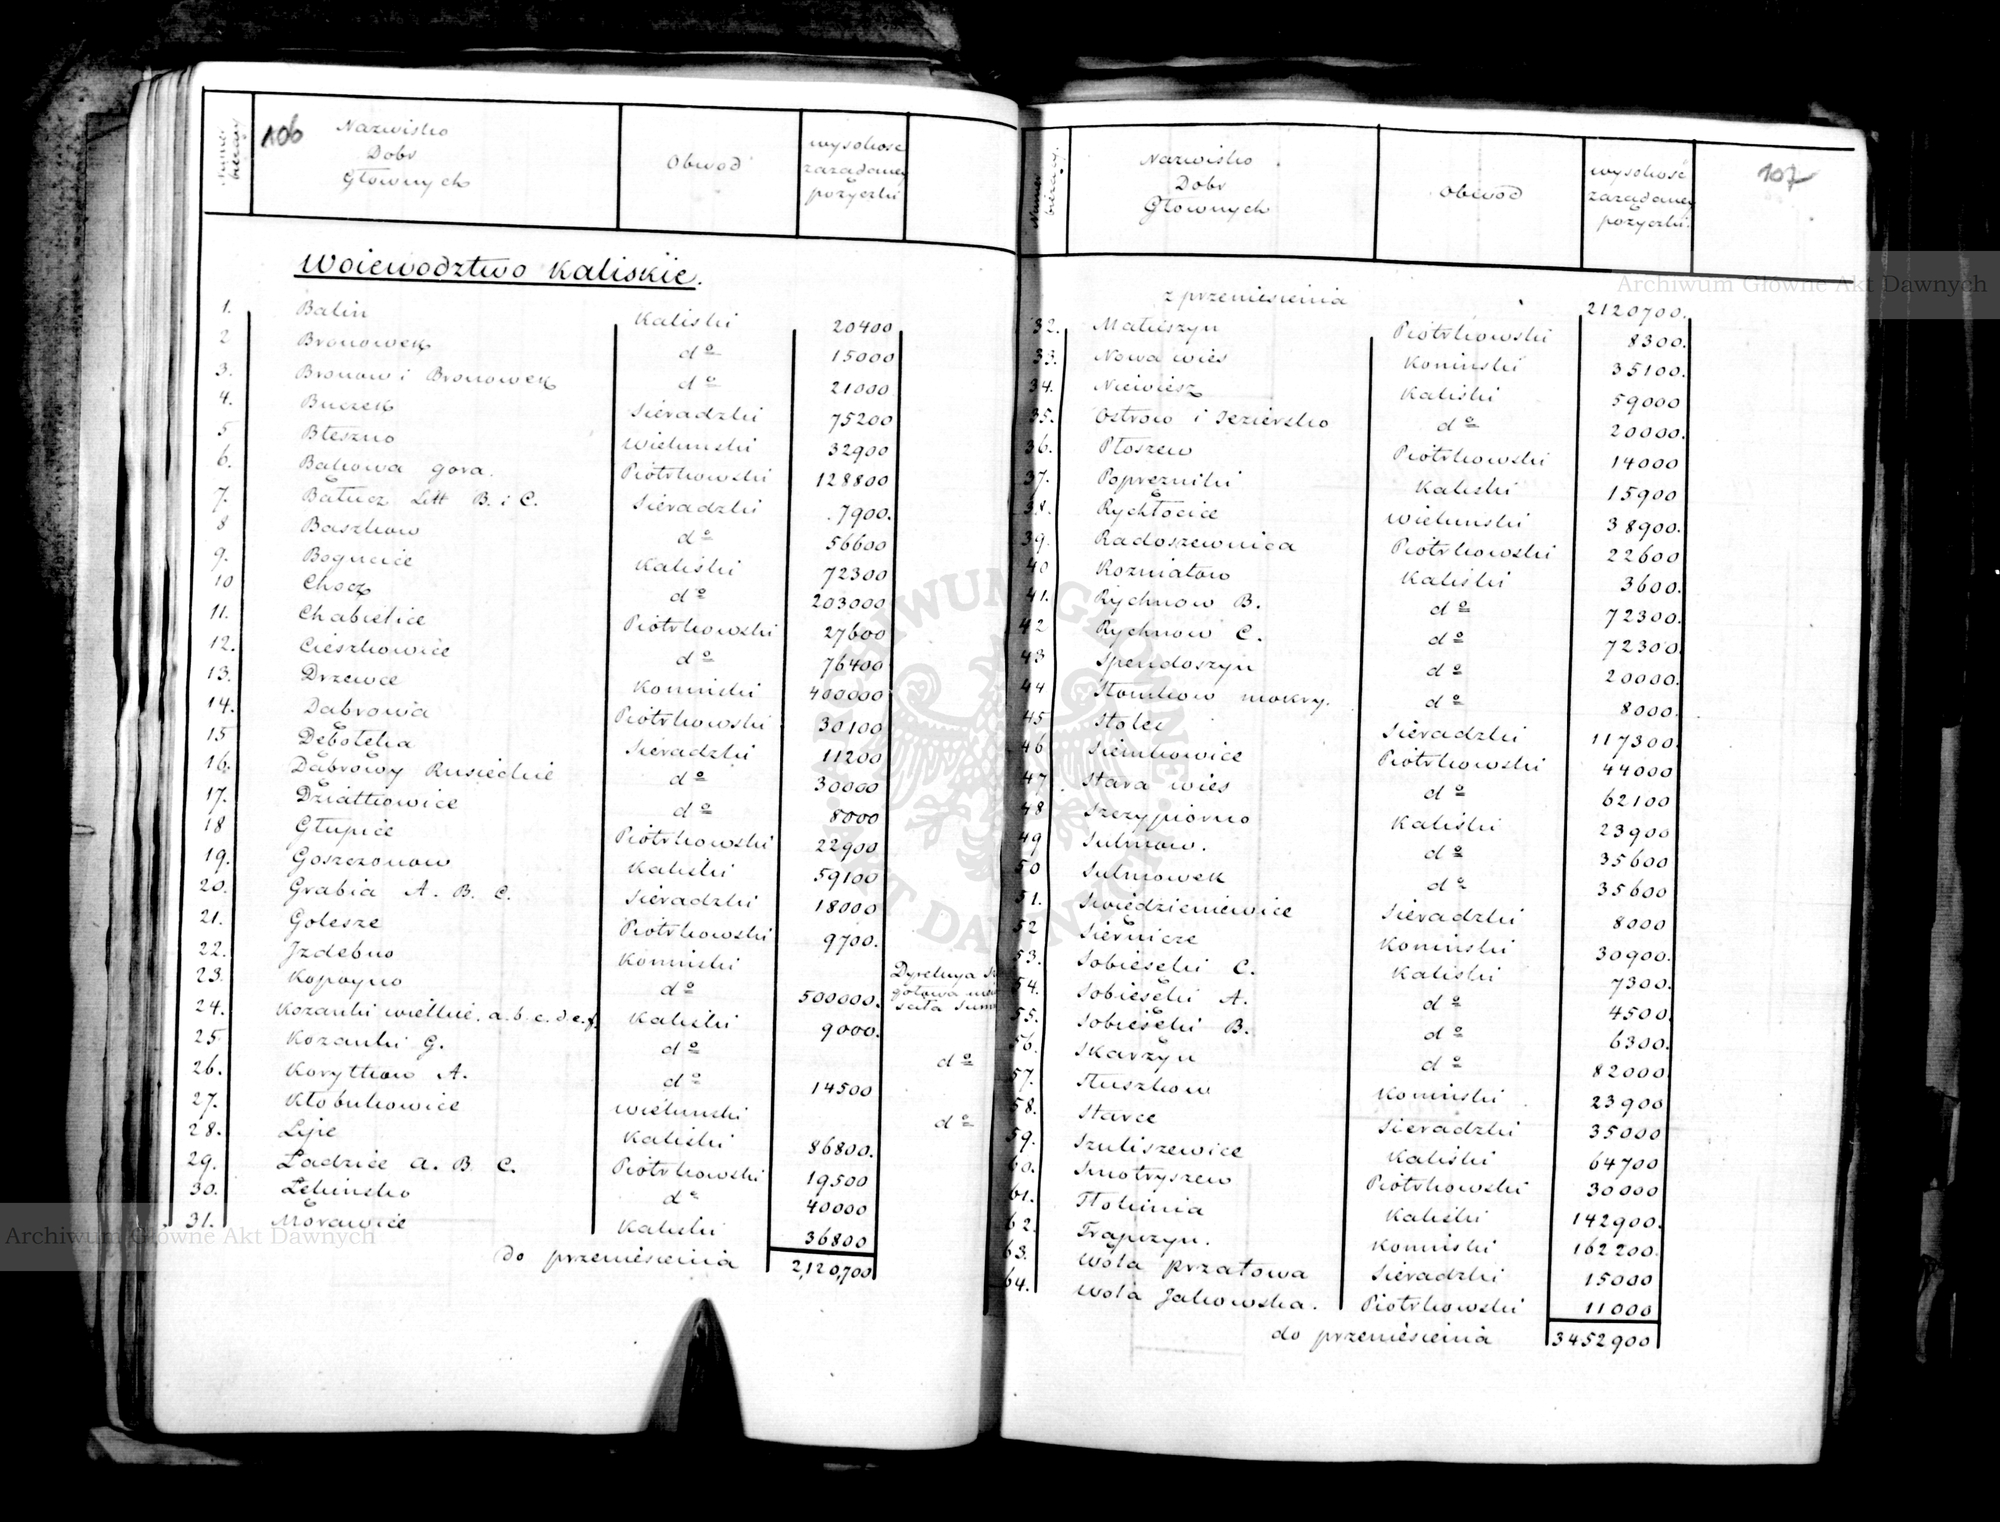 106
Numer bieżący
Nazwisko Dobr Głownych
Obwod
wysokość zażądaney pożyczki
Woiewodztwo Kaliskie.
1. Balin Kaliski 20400
2 Bronowek do 15000
3. Bronow i Bronowek do 21000
4. Buczek Sieradzki 75200
5 Błeszno Wieluński 32900
6. Bąkowa gora. Piotrkowski 128800
7. Bałucz Litt B. i C. Sieradzki 7900.
8 Baszkow do 56600
9. Bogucice Kaliski 72300
10 Chocz do 203000
11. Chabielice Piotrkowski 27600
12. Cieszkowice do 76400
13. Drzewce Koninski 400000
14. Dąbrowa Piotrkowski 30100
15 Dębołęka Sieradzki 11200
16. Dąbrowy Rusieckie do 30000
17. Działkowice do 8000
18 Głupice Piotrkowski 22900
19. Goszczonow Kaliski 59100
20. Grabia A. B. C. Sieradzki 18000
21. Golesze Piotrkowski 9700.
22. Jzdebno Koninski
23. Kopoyno do 500000.
24. Kozanki wielkie. a. b. c. d. e. f. Kaliski 9000.
25 Kozanki G. do do
26. Korytkow A. do 14500
27. Kłobukowice Wieluński do
28. Lipe Kaliski 86800.
29. Ładzice A. B. C. Piotrkowski 19500
30. Lekinsko do 40000
31. Morawice Kaliski 36800
do przeniesienia 2,120,700
107
Numer bieżący
Nazwisko Dobr Głownych
Obwod
wysokość zażądaney pożyczki.
z przeniesienia 2120700.
32. Maluszyn Piotrkowski 8300.
33. Nowa wies Koninski 35100.
34. Niewiesz Kaliski 59000
35. Ostrow i Jeziersko do 20000.
36. Płoszew Piotrkowski 14000
37. Poprężniki Kaliski 15900
38. Rychłocice Wielunski 38900.
39. Radoszewnica Piotrkowski 22600
40 Rozniatow Kaliski 3600.
41. Rychnow B. do 72300.
42 Rychnow C. do 72300.
43 Spendoszyn do 20000.
44 Słomkow mokry. do 8000.
45 Stolec Sieradzki 117300.
46 Siemkowice Piotrkowski 44000
47 Stara wies do 62100
48 Szczypiorno Kaliski 23900
49 Sulmow. do 35600
50 Sulmowek do 35600
51. Swiędzieniewice Sieradzki 8000
52 Siernicze Koninski 30900.
53. Sobiesęki C. Kaliski 7300.
54. Sobiesęki A. do 4500.
55. Sobiesęki B. do 6300.
56. Skarżyn do 82000.
57. Słuszkow Koninski 23900
58. Starce Sieradzki 35000
59. Szuliszewice Kaliski 64700
60. Smotryszew Piotrkowski 30000
61. Tłokinia Kaliski 142900.
62. Trąpczyn. Koninski 162200.
63. Wola Krzatowa Sieradzki 15000
64. Wola Jakowska. Piotrkowski 11000
do przeniesienia 3452900
Archiwum Główne Akt Dawnych
Archiwum Główne Akt Dawnych